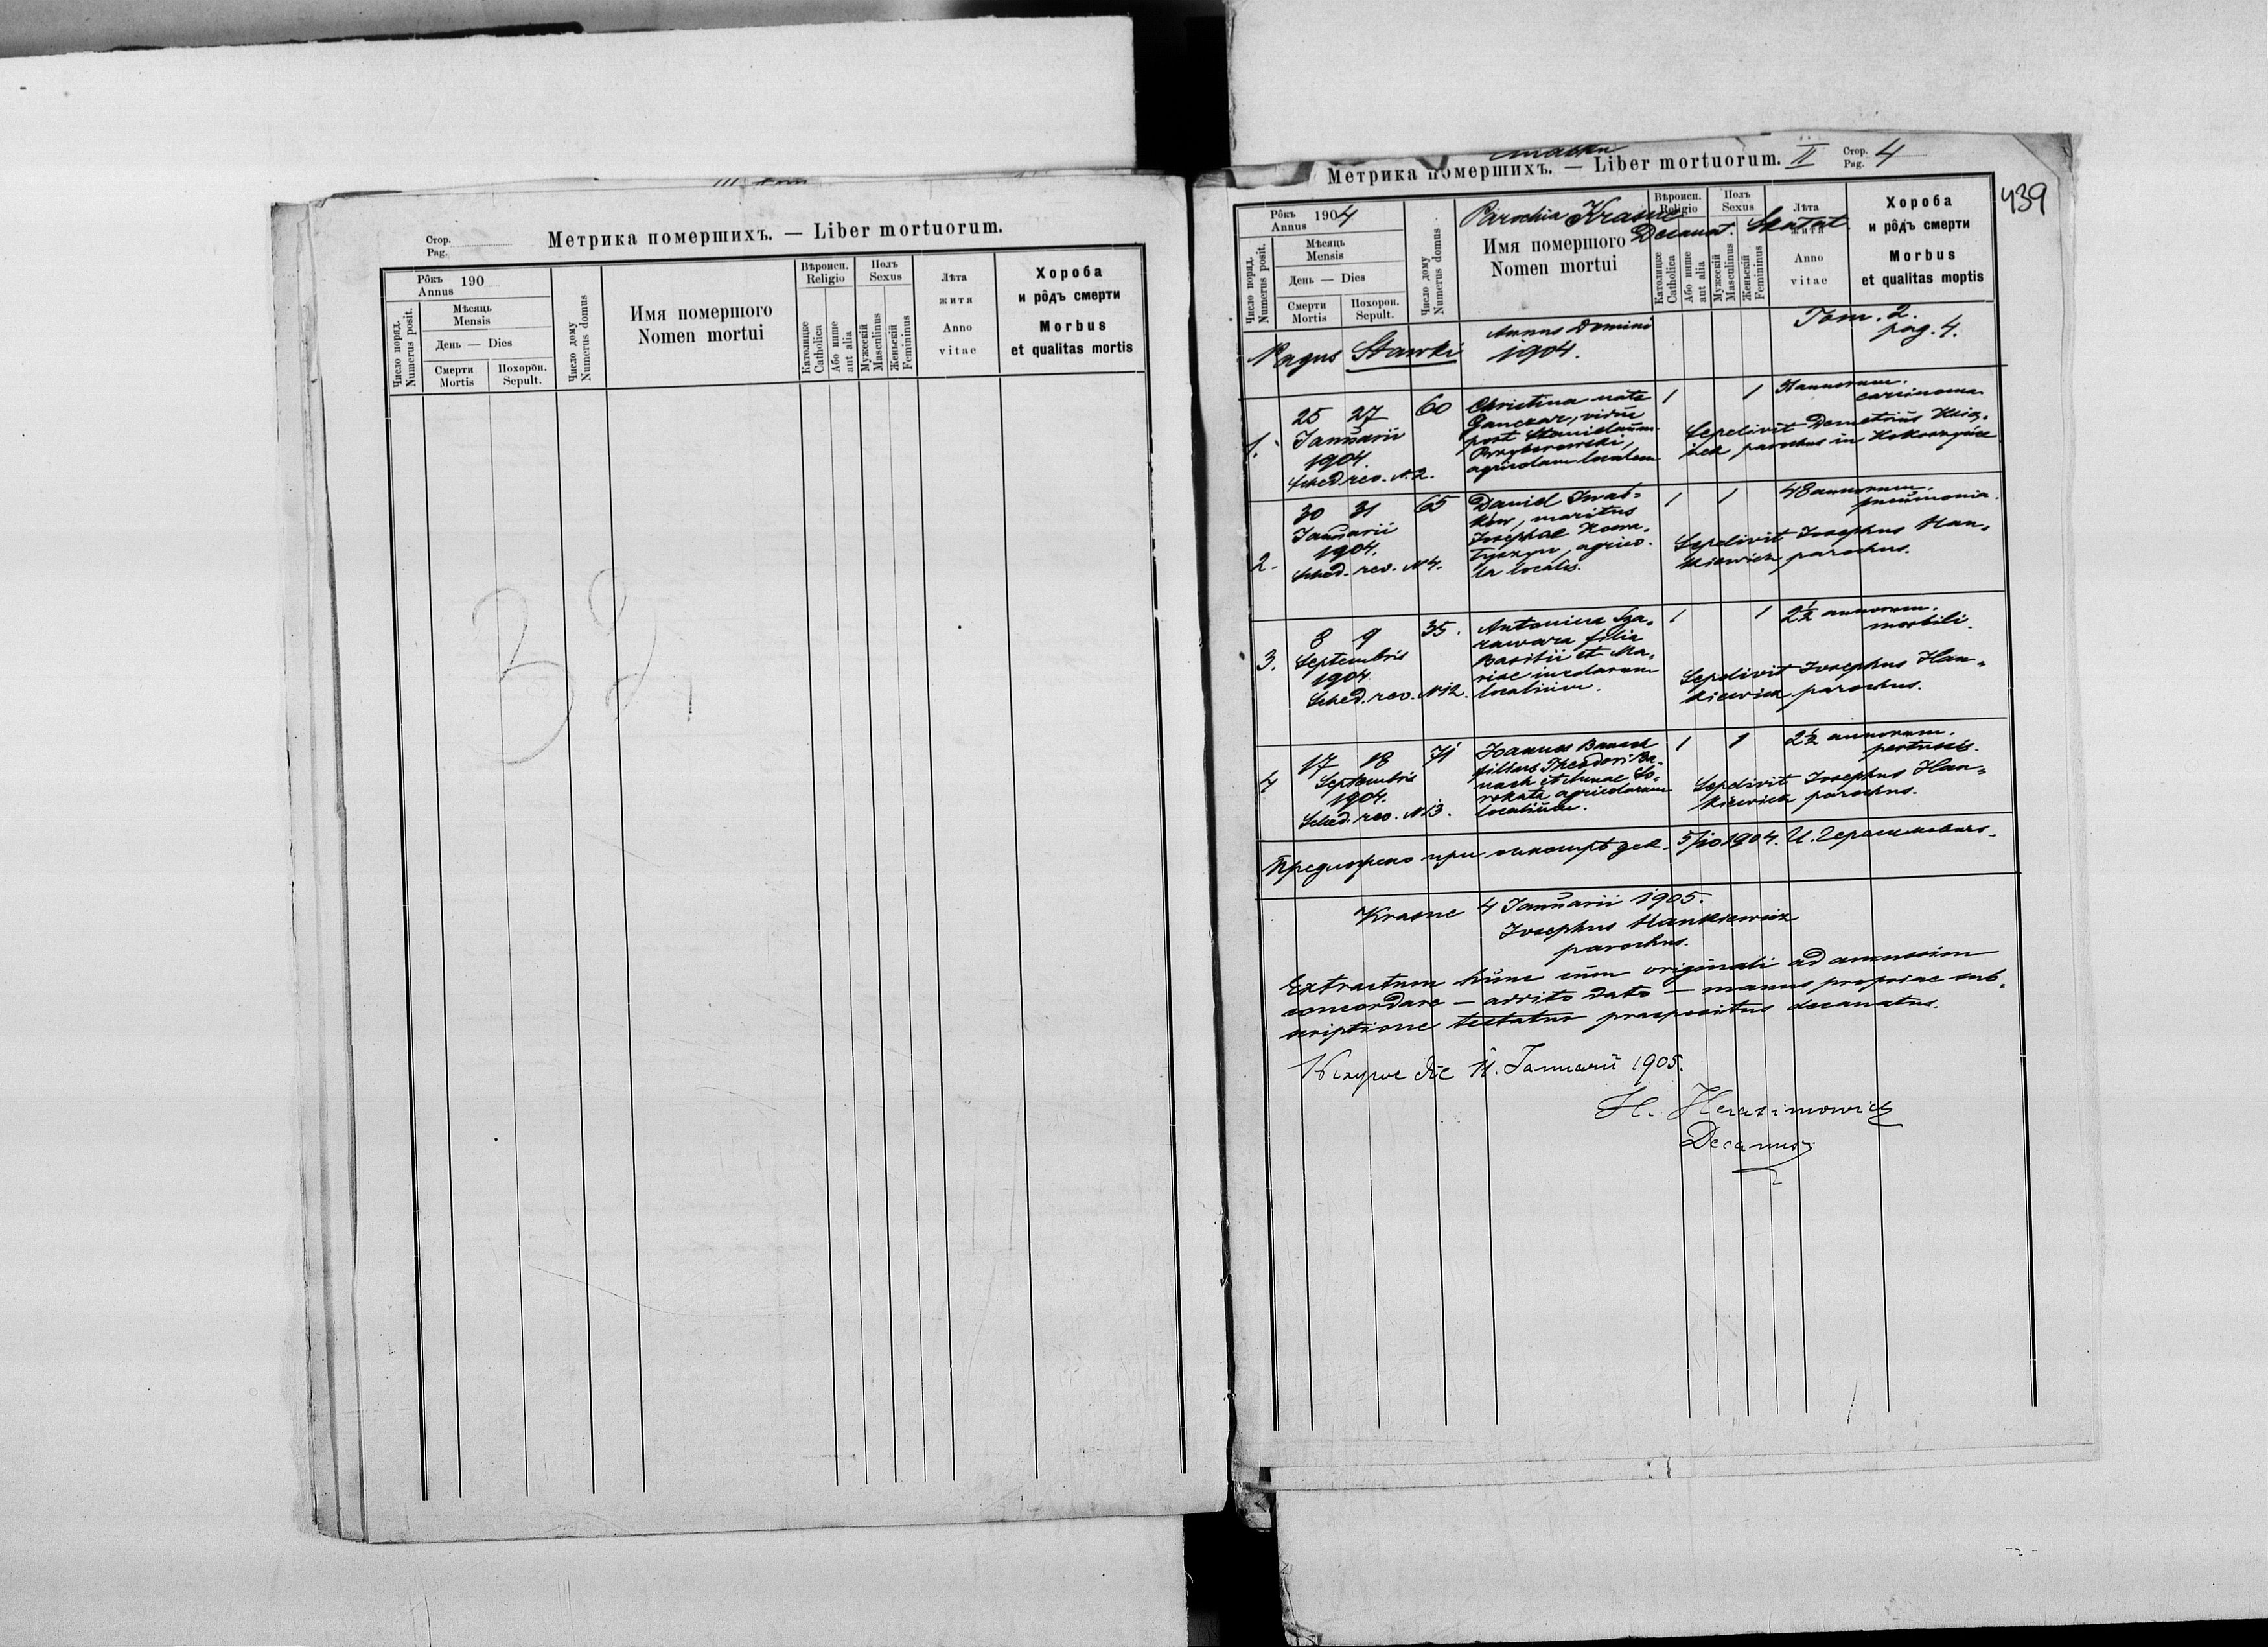 Стор.
Pag.
Метрика помершихъ. — Liber mortuorum.
Рôкъ 190
Annus
Мѣсяць
Mensis
День — Dies
Смерти
Mortis
Похорôн.
Sepult.
Число поряд.
Numerus posit.
Число дому
Numerus domus
Имя помершого
Nomen mortui
Вѣроисп.
Religio
Католицке
Catholica
Або инше
aut alia
Полъ
Sexus
Мужескій
Masculinus
Женьскій
Femininus
Лѣта
житя
Anno
vitae
Хороба
и рôдъ смерти
Morbus
et qualitas mortis
Метрика помершихъ. — Liber mortuorum. II
Стор.
Pag. 4
439
Рôкъ 1904
Annus
Мѣсяць
Mensis
День — Dies
Смерти
Mortis
Похорон.
Sepult.
Число поряд.
Numerus posit.
Число дому
Numerus domus
Parochia Krasne
Decanat. Skałat.
Имя помершого
Nomen mortui
Вѣроисп.
Religio
Католицке
Catholica
Або инше
aut alia
Полъ
Sexus
Мужескій
Masculinus
Женьскій
Femininus
Лѣта
житя
Anno
vitae
Хороба
и рôдъ смерти
Morbus
et qualitas moptis
Pagus Stawki
Annus Domini
1904.
Tom. 2.
pag. 4.
1.
25 27
Januarii
1904
Sched. rev. N. 2.
60
Christina nata
Ganczar, vidua
post Stanislaum
agricolam localem
1 1
annorum.
carcinoma
Sepelivit Demetrius
parochus in Kokoszyńce
2.
30 31
Januarii
1904.
Sched. rev. N 4.
65
Daniel Iwaś-
ków, maritus
Josephae Roma-
tyszyn, agrico-
la localis.
1 1
48 annorum.
pneumonia.
Sepelivit Josephus Han-
kiewicz parochus.
3.
8 9
Septembris
1904
Sched. rev. N 12.
35.
Antonina Sza-
rawara filia
Basilii et Ma-
riae incolarum
localium.
1 1
2½ annorum.
morbili.
Sepelivit Josephus Han-
kiewicz parochus.
4
17 18
Septembris
1904.
Sched. rev. N 13.
71
Joannes Banach
filius Theodori Ba-
nach et Annae So-
rokata agricolarum
localium.
1 1
2½ annorum.
pertussis.
Sepelivit Josephus Han-
kiewicz parochus.
Предложено при 5/10 1904. И. Герасимович.
Krasne 4 Januarii 1905.
Josephus Hankiewicz
parochus.
Extractum hunc cum originali ad amussim
concordare — adrito dato — manus propriae sub-
scriptione testatur praepositus decanatus.
die 11. Januarii 1905.
H. Herasimowicz
Decanus